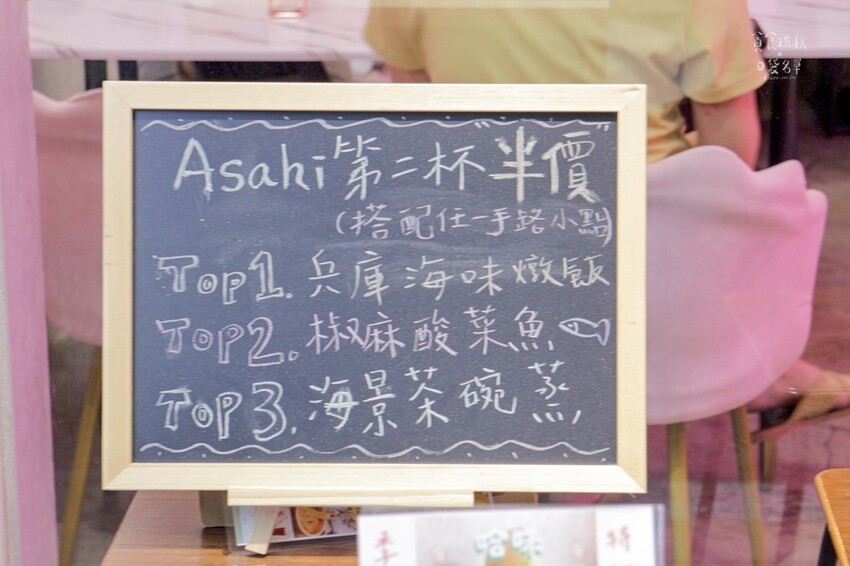 Asahi第二杯"半價"
(搭配任一手路小點)
Top1. 兵庫海味燉飯
Top2. 椒麻酸菜魚
Top3. 海景茶碗蒸
季
哈味
特